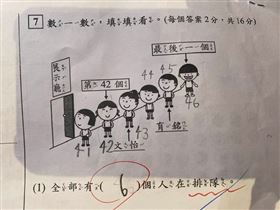 7 數一數，填填看。(每個答案2分，共16分)
最後一個
展示廳
第42個
44 45
46
育銘
43
41 42文怡
(1) 全部有( 6 )個人在排隊。